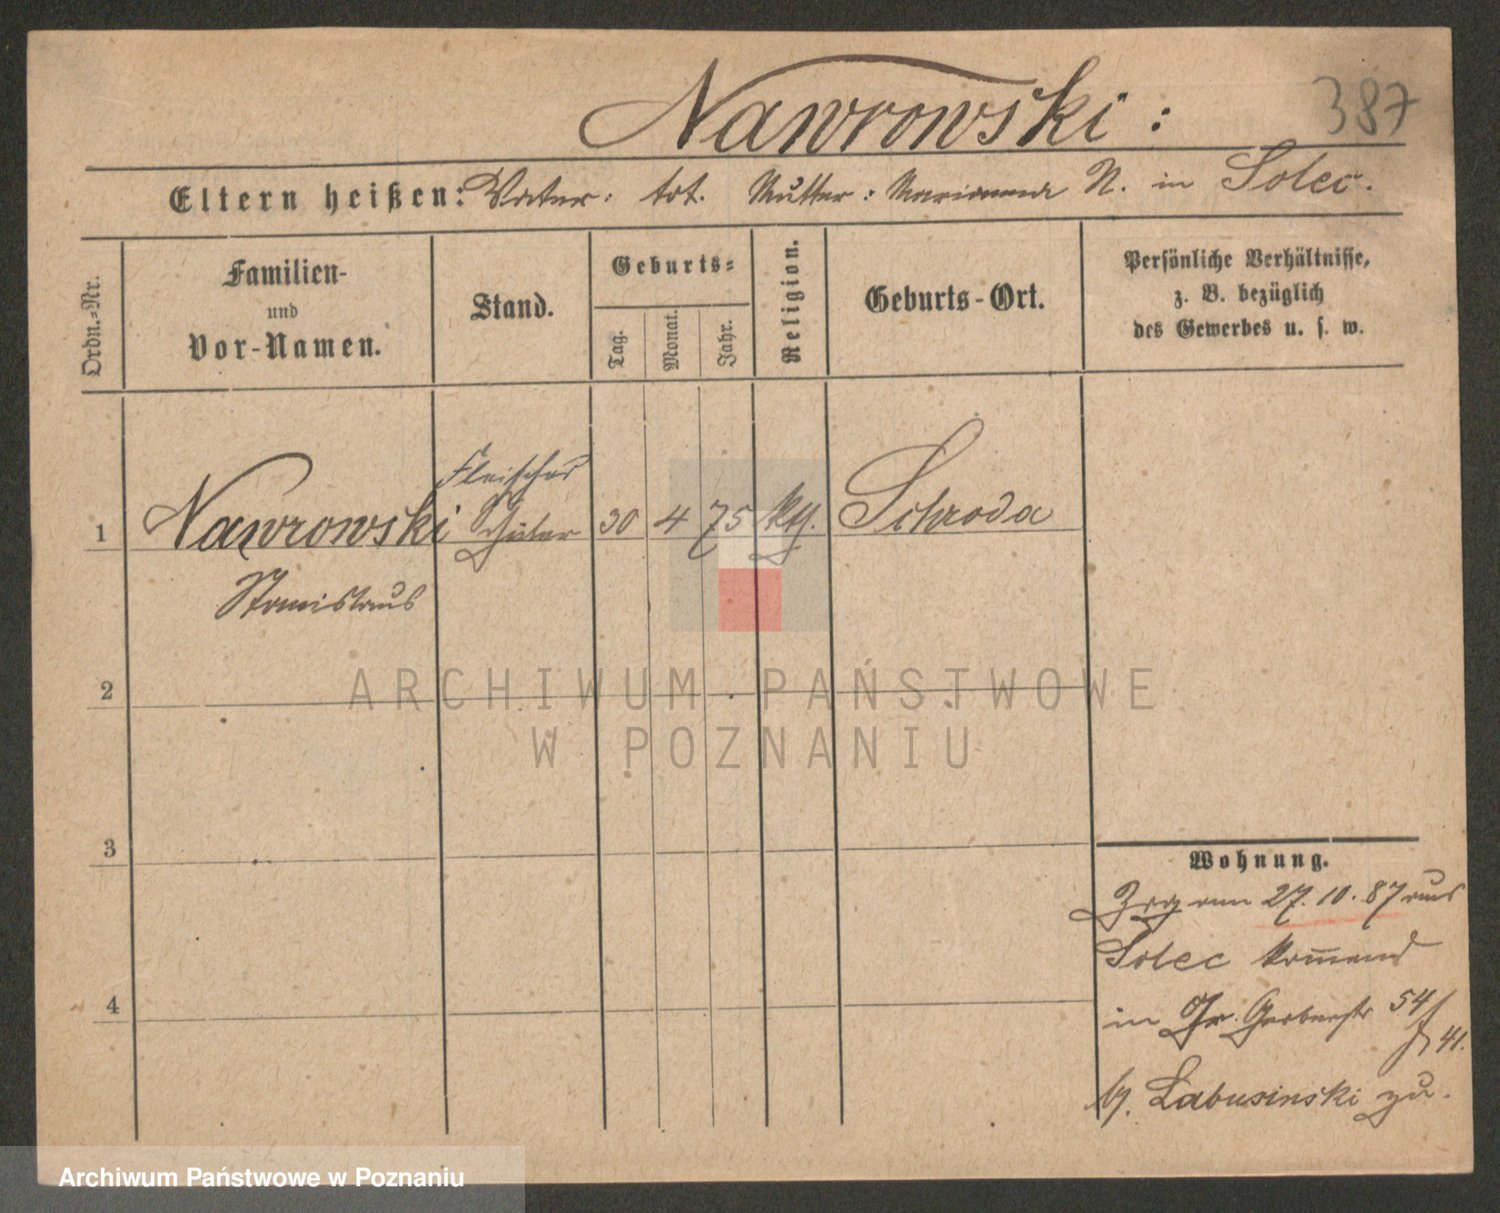 Nawrowski:
387
Eltern heißen: Vater: tot. Mutter: Marianna N. in Solec.
Ordn.=Nr.
Familien-
und
Vor-Namen.
Stand.
Geburts=
Tag.
Monat.
Jahr.
Religion.
Geburts-Ort.
Persönliche Verhältnisse,
z. B. bezüglich
des Gewerbes u. s. w.
Fleischer
1 Nawrowski Schüler 30 4 75 Kth. Schroda
Stanislaus
2
3
4
Wohnung.
Zzg am 27.10.87 aus
Solec kommend
in Gr. Gerberstr 54/
41.
bei Labusinski zu.
ARCHIWUM PAŃSTWOWE
W POZNANIU
Archiwum Państwowe w Poznaniu